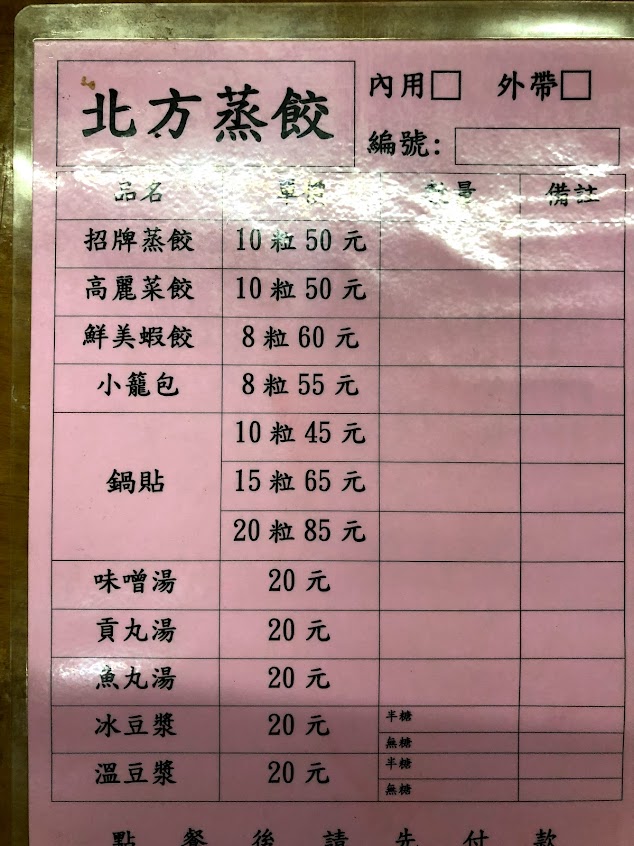 北方蒸餃
內用□ 外帶□
編號:
品名 單價 數量 備註
招牌蒸餃 10 粒 50 元
高麗菜餃 10 粒 50 元
鮮美蝦餃 8 粒 60 元
小籠包 8 粒 55 元
鍋貼 10 粒 45 元
15 粒 65 元
20 粒 85 元
味噌湯 20 元
貢丸湯 20 元
魚丸湯 20 元
冰豆漿 20 元 半糖
無糖
溫豆漿 20 元 半糖
無糖
點餐後請先付款